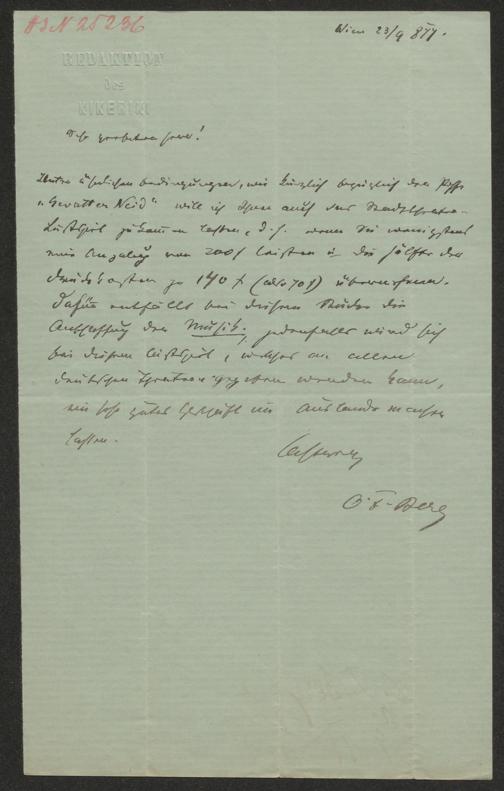 HJN 25236
Wien 23/9 877.
REDAKTION
des
KIKERIKI
Sehr geehrter Herr!
Unter ähnlichen Bedingungen, wie kürzlich bezüglich der Posse
„Gevatter Neid" will ich Ihnen auch das Stadttheater-
Lustspiel zukommen lassen, d. h. wenn Sie wenigstens
eine Angabe von 200 f leisten u die Hälfte der
Druckkosten zu 140 f (also 70 f) übernehmen.
Dafür entfällt bei diesem Stücke die
Anschaffung der Musik; jedenfalls wird sich
bei diesem Lustspiel, welches an allen
deutschen Theatern gegeben werden kann,
ein sehr gutes Geschäft im Auslande machen
lassen.
O. F. Berg